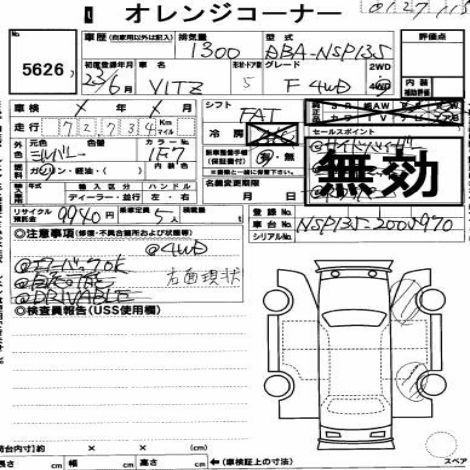 オレンジコーナー
No.
5626
車歴 (自家用以外は記入)
排気量
1300
型式
DBA-NSP135
評価点
初度登録年月
23/6月
車名
VITZ
形状・ドア数
5
グレード
F 4WD
2WD
4WD
内装
補助評価
車検 年 月
シフト
FAT
走行 72734 Km マイル
冷房
外色 元色 シルバー
色替
カラーNo.
1F7
セールスポイント
無効
燃料 ガソリン・軽油・( )
車歴整備手帳
(保証書付)
有・無
輸入車
年式
輸入区分
ハンドル
ディーラー・並行
左・右
名義変更期限
月 日
リサイクル預託金 9940円
乗車定員 5人
積載量
登録No.
車台No. NSP135-2005970
シリアルNo.
◎注意事項 (修復・不具合箇所および状態等)
@4WD
@エアーバックOK
右面現状
@DRIVABLE
◎検査員報告 (USS使用欄)
荷台内寸) 約 × × cm
長さ cm 幅 cm 高さ cm ← (車検証上の寸法)
スペア